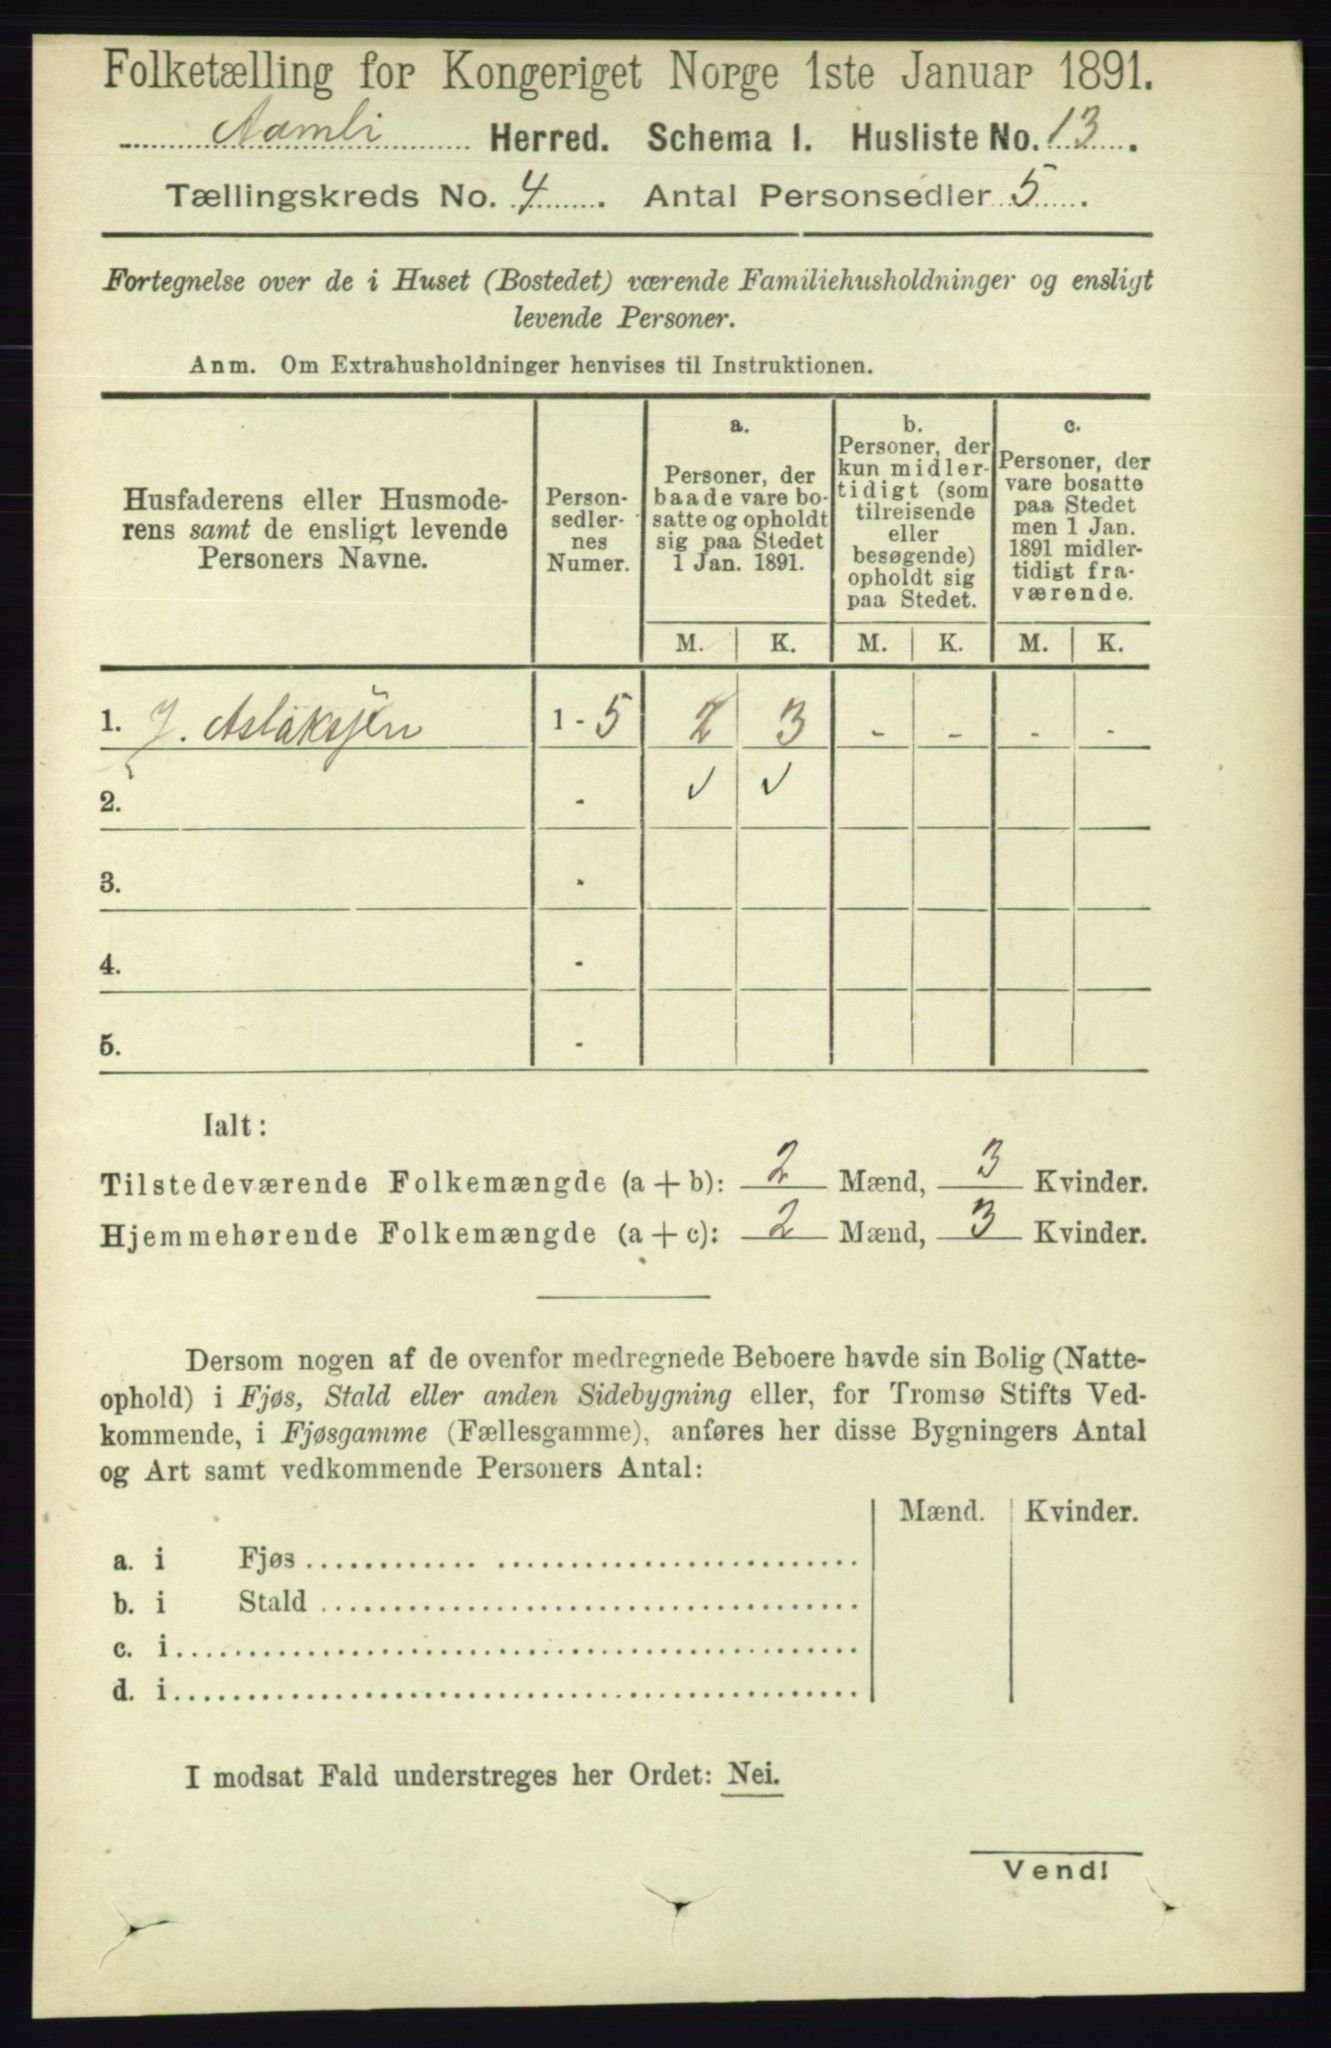 Folketælling for Kongeriget Norge 1ste Januar 1891.
Aamli Herred. Schema I. Husliste No. 13.
Tællingskreds No. 4. Antal Personsedler 5.
Fortegnelse over de i Huset (Bostedet) værende Familiehusholdninger og ensligt
levende Personer.
Anm. Om Extrahusholdninger henvises til Instruktionen.
Husfaderens eller Husmode-
rens samt de ensligt levende
Personers Navne.
Person-
sedler-
nes
Numer.
a.
Personer, der
baade vare bo-
satte og opholdt
sig paa Stedet
1 Jan. 1891.
b.
Personer, der
kun midler-
tidigt (som
tilreisende
eller
besøgende)
opholdt sig
paa Stedet.
c.
Personer, der
vare bosatte
paa Stedet
men 1 Jan.
1891 midler-
tidigt fra-
værende.
M. K. M. K. M. K.
1. J. Aslaksjen 1 - 5 2 3 - - - -
2. - ✓ ✓
3. -
4. -
5. -
Ialt:
Tilstedeværende Folkemængde (a + b): 2 Mænd, 3 Kvinder.
Hjemmehørende Folkemængde (a + c): 2 Mænd, 3 Kvinder.
Dersom nogen af de ovenfor medregnede Beboere havde sin Bolig (Natte-
ophold) i Fjøs, Stald eller anden Sidebygning eller, for Tromsø Stifts Ved-
kommende, i Fjøsgamme (Fællesgamme), anføres her disse Bygningers Antal
og Art samt vedkommende Personers Antal:
Mænd. Kvinder.
a. i Fjøs
b. i Stald
c. i
d. i
I modsat Fald understreges her Ordet: Nei.
Vend!